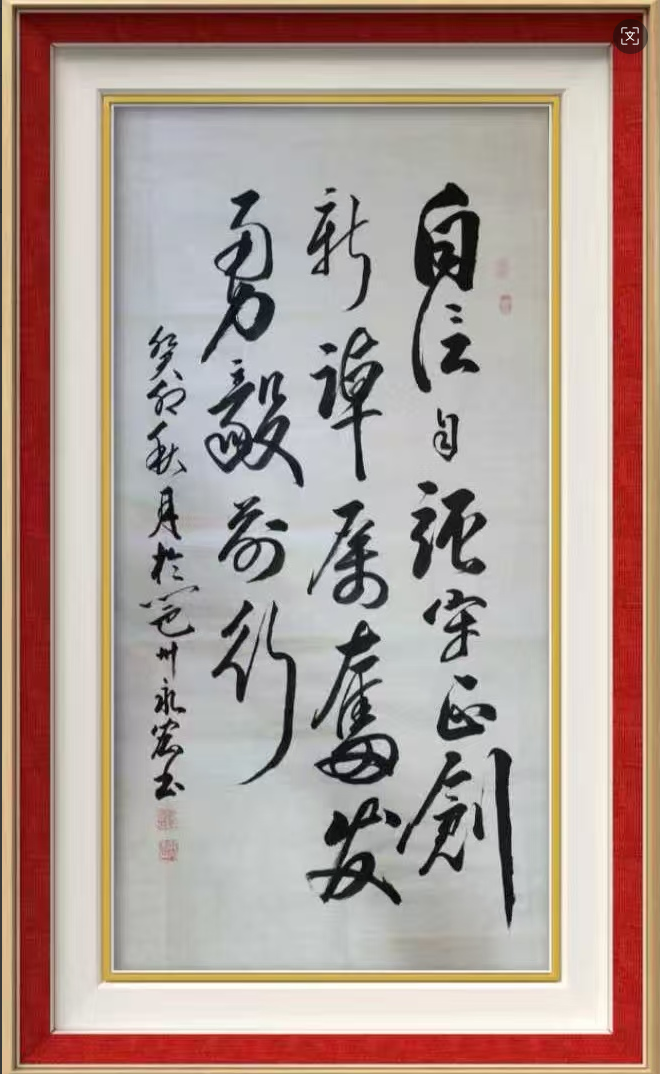 自信自强守正創
新踔厲奮发
勇毅前行
癸卯秋月於邕州永宏书